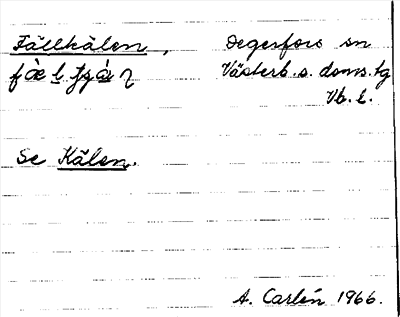 Fällkälen, Degerfors sn
Västerb. s. doms. tg
Vb. l.
Se Kälen.
A. Carlén 1966.